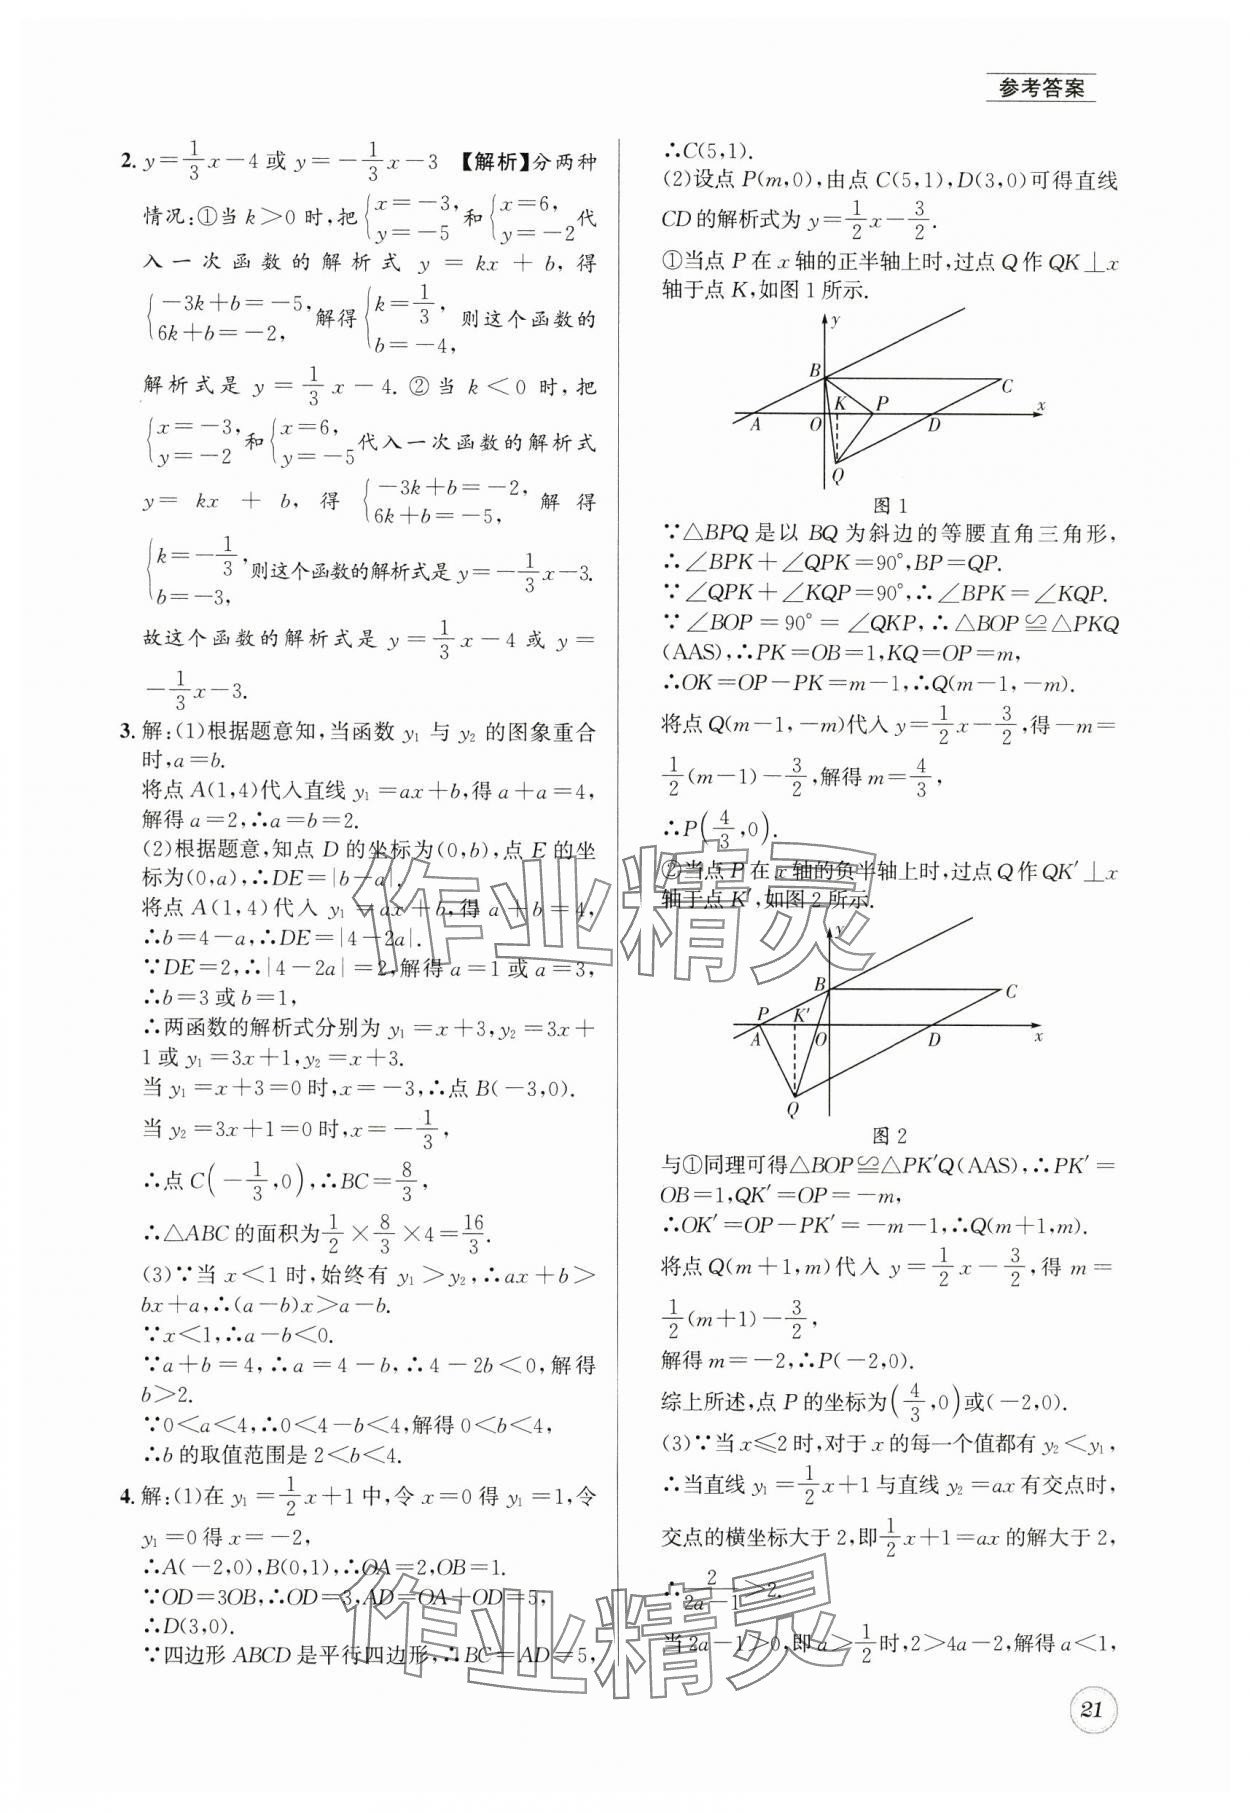 参考答案
2. y=1/3x-4或y=-1/3x-3 【解析】分两种
情况:①当k>0时,把{x=-3, y=-5和{x=6, y=-2代
入一次函数的解析式y=kx+b,得
{-3k+b=-5, 6k+b=-2,解得{k=1/3, b=-4,则这个函数的
解析式是y=1/3x-4.②当k<0时,把
{x=-3, y=-2和{x=6, y=-5代入一次函数的解析式
y=kx+b,得{-3k+b=-2, 6k+b=-5,解得
{k=-1/3, b=-3,则这个函数的解析式是y=-1/3x-3.
故这个函数的解析式是y=1/3x-4或y=
-1/3x-3.
3. 解:(1)根据题意知,当函数y₁与y₂的图象重合
时,a=b.
将点A(1,4)代入直线y₁=ax+b,得a+a=4,
解得a=2,∴a=b=2.
(2)根据题意,知点D的坐标为(0,b),点E的坐
标为(0,a),∴DE=|b-a|.
将点A(1,4)代入y₁=ax+b,得a+b=4,
∴b=4-a,∴DE=|4-2a|.
∵DE=2,∴|4-2a|=2,解得a=1或a=3,
∴b=3或b=1,
∴两函数的解析式分别为y₁=x+3,y₂=3x+
1或y₁=3x+1,y₂=x+3.
当y₁=x+3=0时,x=-3,∴点B(-3,0).
当y₂=3x+1=0时,x=-1/3,
∴点C(-1/3,0),∴BC=8/3,
∴△ABC的面积为1/2×8/3×4=16/3.
(3)∵当x<1时,始终有y₁>y₂,∴ax+b>
bx+a,∴(a-b)x>a-b.
∵x<1,∴a-b<0.
∵a+b=4,∴a=4-b,∴4-2b<0,解得
b>2.
∵0<a<4,∴0<4-b<4,解得0<b<4,
∴b的取值范围是2<b<4.
4. 解:(1)在y₁=1/2x+1中,令x=0得y₁=1,令
y₁=0得x=-2,
∴A(-2,0),B(0,1),∴OA=2,OB=1.
∵OD=3OB,∴OD=3,AD=OA+OD=5,
∴D(3,0).
∵四边形ABCD是平行四边形,∴BC=AD=5,
∴C(5,1).
(2)设点P(m,0),由点C(5,1),D(3,0)可得直线
CD的解析式为y=1/2x-3/2.
①当点P在x轴的正半轴上时,过点Q作QK⊥x
轴于点K,如图1所示.
y
B
C
K
P
x
A
O
D
Q
图1
∵△BPQ是以BQ为斜边的等腰直角三角形,
∴∠BPK+∠QPK=90°,BP=QP.
∵∠QPK+∠KQP=90°,∴∠BPK=∠KQP.
∵∠BOP=90°=∠QKP,∴△BOP≌△PKQ
(AAS),∴PK=OB=1,KQ=OP=m,
∴OK=OP-PK=m-1,∴Q(m-1,-m).
将点Q(m-1,-m)代入y=1/2x-3/2,得-m=
1/2(m-1)-3/2,解得m=4/3,
∴P(4/3,0).
②当点P在x轴的负半轴上时,过点Q作QK′⊥x
轴于点K′,如图2所示.
y
B
C
P
K′
A
O
D
x
Q
图2
与①同理可得△BOP≌△PK′Q(AAS),∴PK′=
OB=1,QK′=OP=-m,
∴OK′=OP-PK′=-m-1,∴Q(m+1,m).
将点Q(m+1,m)代入y=1/2x-3/2,得m=
1/2(m+1)-3/2,
解得m=-2,∴P(-2,0).
综上所述,点P的坐标为(4/3,0)或(-2,0).
(3)∵当x≤2时,对于x的每一个值都有y₂<y₁,
∴当直线y₁=1/2x+1与直线y₂=ax有交点时,
交点的横坐标大于2,即1/2x+1=ax的解大于2,
∴2/(2a-1)>2.
当2a-1>0,即a>1/2时,2>4a-2,解得a<1,
作业精灵
作业精灵
21